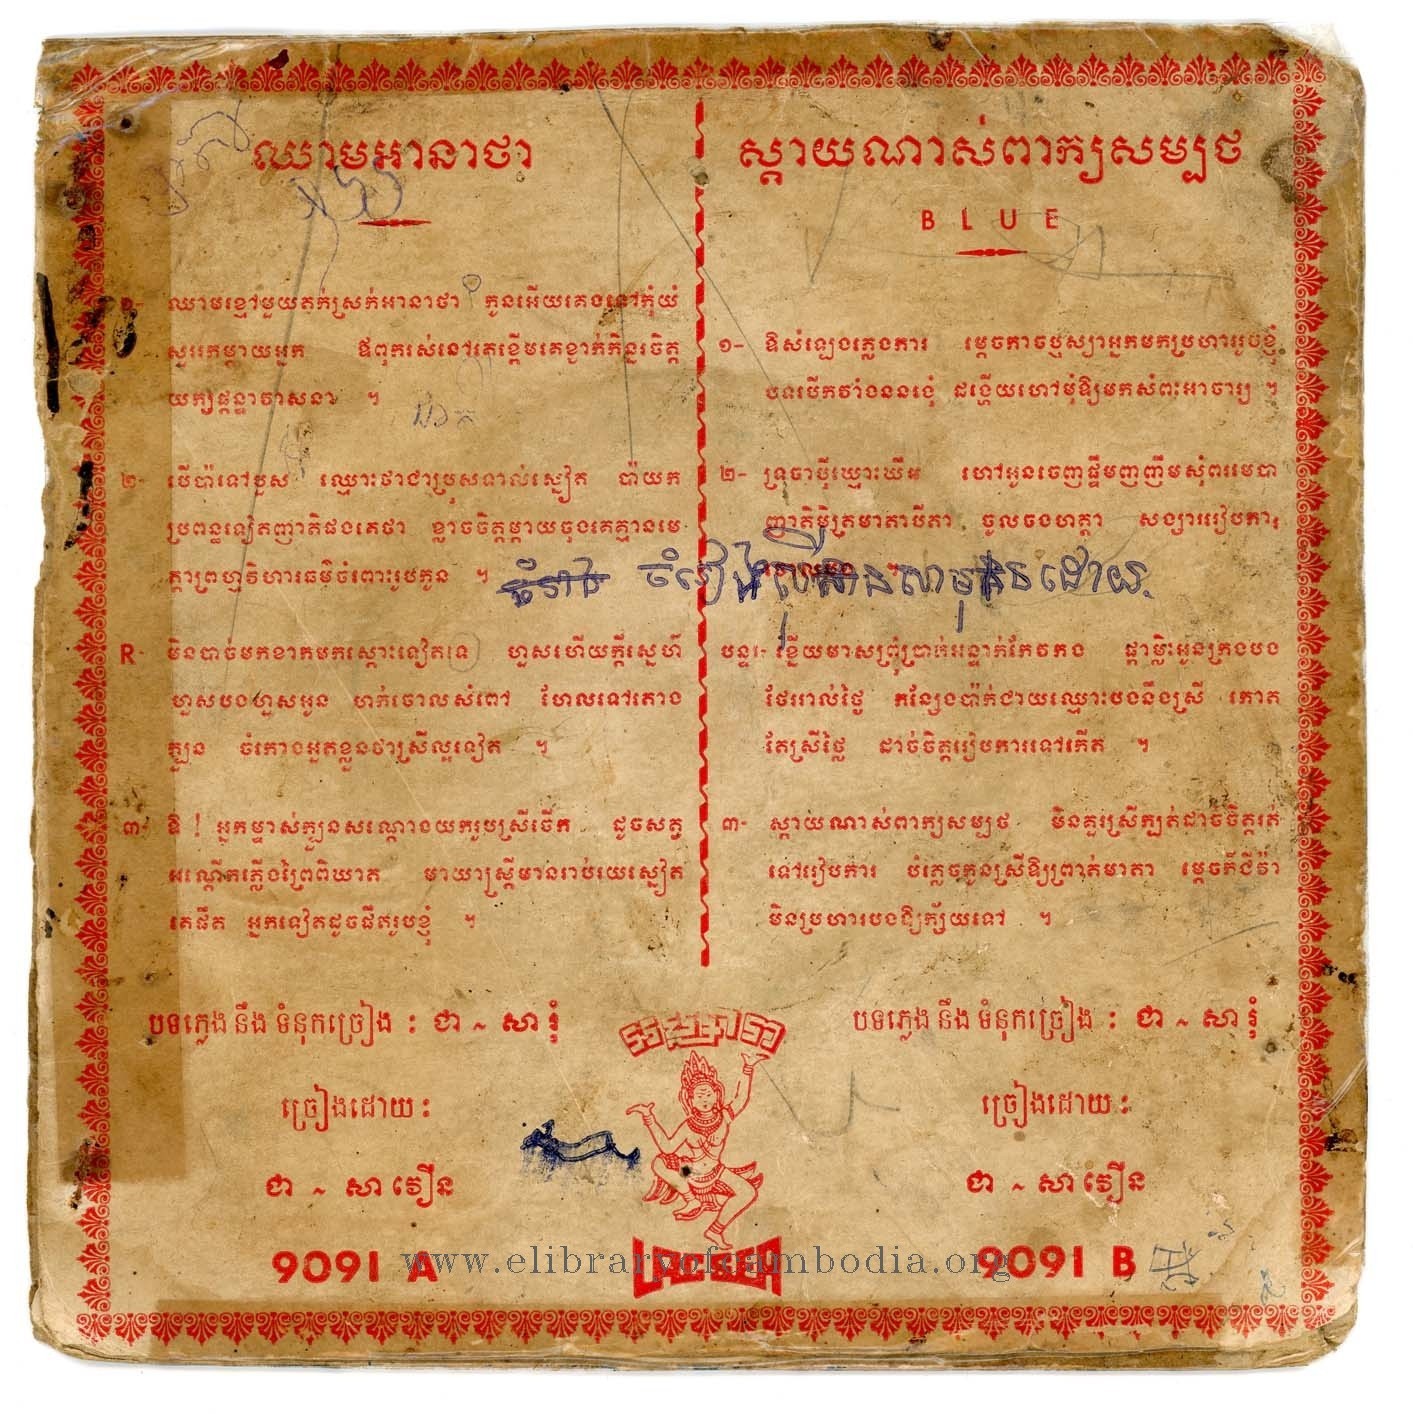 ឈាមអានាថា
១- ឈាមខ្មៅមួយតក់ស្រក់អានាថា កូនអើយគេងនៅកុំយំ
សួររកម្ដាយអ្នក ឪពុករស់នៅតេខ្ដើមគេខ្ទាក់
យក្ស វាសនា ។
២- បើប៉ាទៅបួស ឈ្មោះថាជាប្រុសទាល់ស្នៀត ប៉ាយក
ប្រពន្ធទៀតញាតិផងគេថា ខ្លាចចិត្តម្ដាយចុងគេគ្មានមេ-
ត្តាព្រហ្មវិហារធម៌ចំពោះរូបកូន ។
R- មិនបាច់មកខាកមកស្ដោះទៀតទេ ហួសហើយក្ដីស្នេហ៍
ហួសបងហួសអូន ហក់ចោលសំពៅ ហែលទៅតោង
ក្បួន ចំកោងអួតខ្លួនថាស្រីល្អទៀត ។
៣- ឱ ! អ្នកម្ចាស់ក្បួនសណ្ដោងយករូបស្រីចើក ដូចសត្វ
អណ្ដើកភ្លើងព្រៃពិឃាត មាយាស្ត្រីមានរាប់រយស្នៀត
តេផឹត អ្នកទៀតដូចផឹតរូបខ្ញុំ ។
បទភ្លេង នឹង ទំនុកច្រៀង : ជា ~ សា រុំ
ច្រៀងដោយ :
ជា ~ សា វឿន
9091 A
ស្ដាយណាស់ពាក្យសម្បថ
BLUE
១- ឱសំឡេងភ្លេងការ ម្ដេចកាចឫស្យាអ្នកមកប្រហាររូបខ្ញុំ
បទបើកវាំងននងងុំ ដង្ហើយហៅមុំឱ្យមកសំពះអាចារ្យ ។
២- ទ្រុចាប៉ីឃ្មោះឃីអ ហៅអូនចេញផ្ទឹមញញឹមសុំពរមេបា
ញាតិមិត្រមាតាបីតា ចូលចងហត្ថា សង្សាររៀបការ
ចំរៀង ដោយ
បន្ទរ- ខ្នើយមាសព្រុំប្រាក់អន្ទាក់កែវកង ផ្ដាម្លិះអូនក្រងបង
ថែររាល់ថ្ងៃ កន្សែងប៉ាក់ជាយឈ្មោះបងនឹងស្រី កោត
តែស្រីថ្លៃ ដាច់ចិត្តរៀបការទៅកើត ។
៣- ស្ដាយណាស់ពាក្យសម្បថ មិនគួរស្រីក្បត់ដាច់ចិត្តរត់
ទៅរៀបការ បំភ្លេចកូនស្រីឱ្យព្រាត់មាតា ម្ដេចក៏ជីវ៉ា
មិនប្រហារបងឱ្យក្ស័យទៅ ។
បទភ្លេង នឹង ទំនុកច្រៀង : ជា ~ សា រុំ
ច្រៀងដោយ :
ជា ~ សា វឿន
9091 B
LAC SEA
www.elibraryofcambodia.org